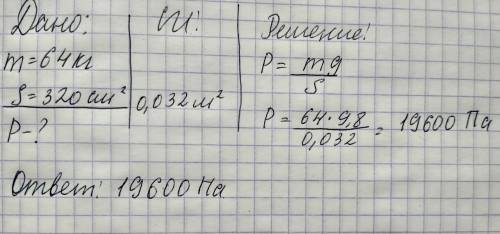 Дано:
m=64кг
S=320 см²
P-?
СИ:
0,032 м²
Решение:
P = mg / S
P = 64·9,8 / 0,032 = 19600 Па
Ответ: 19600 Па